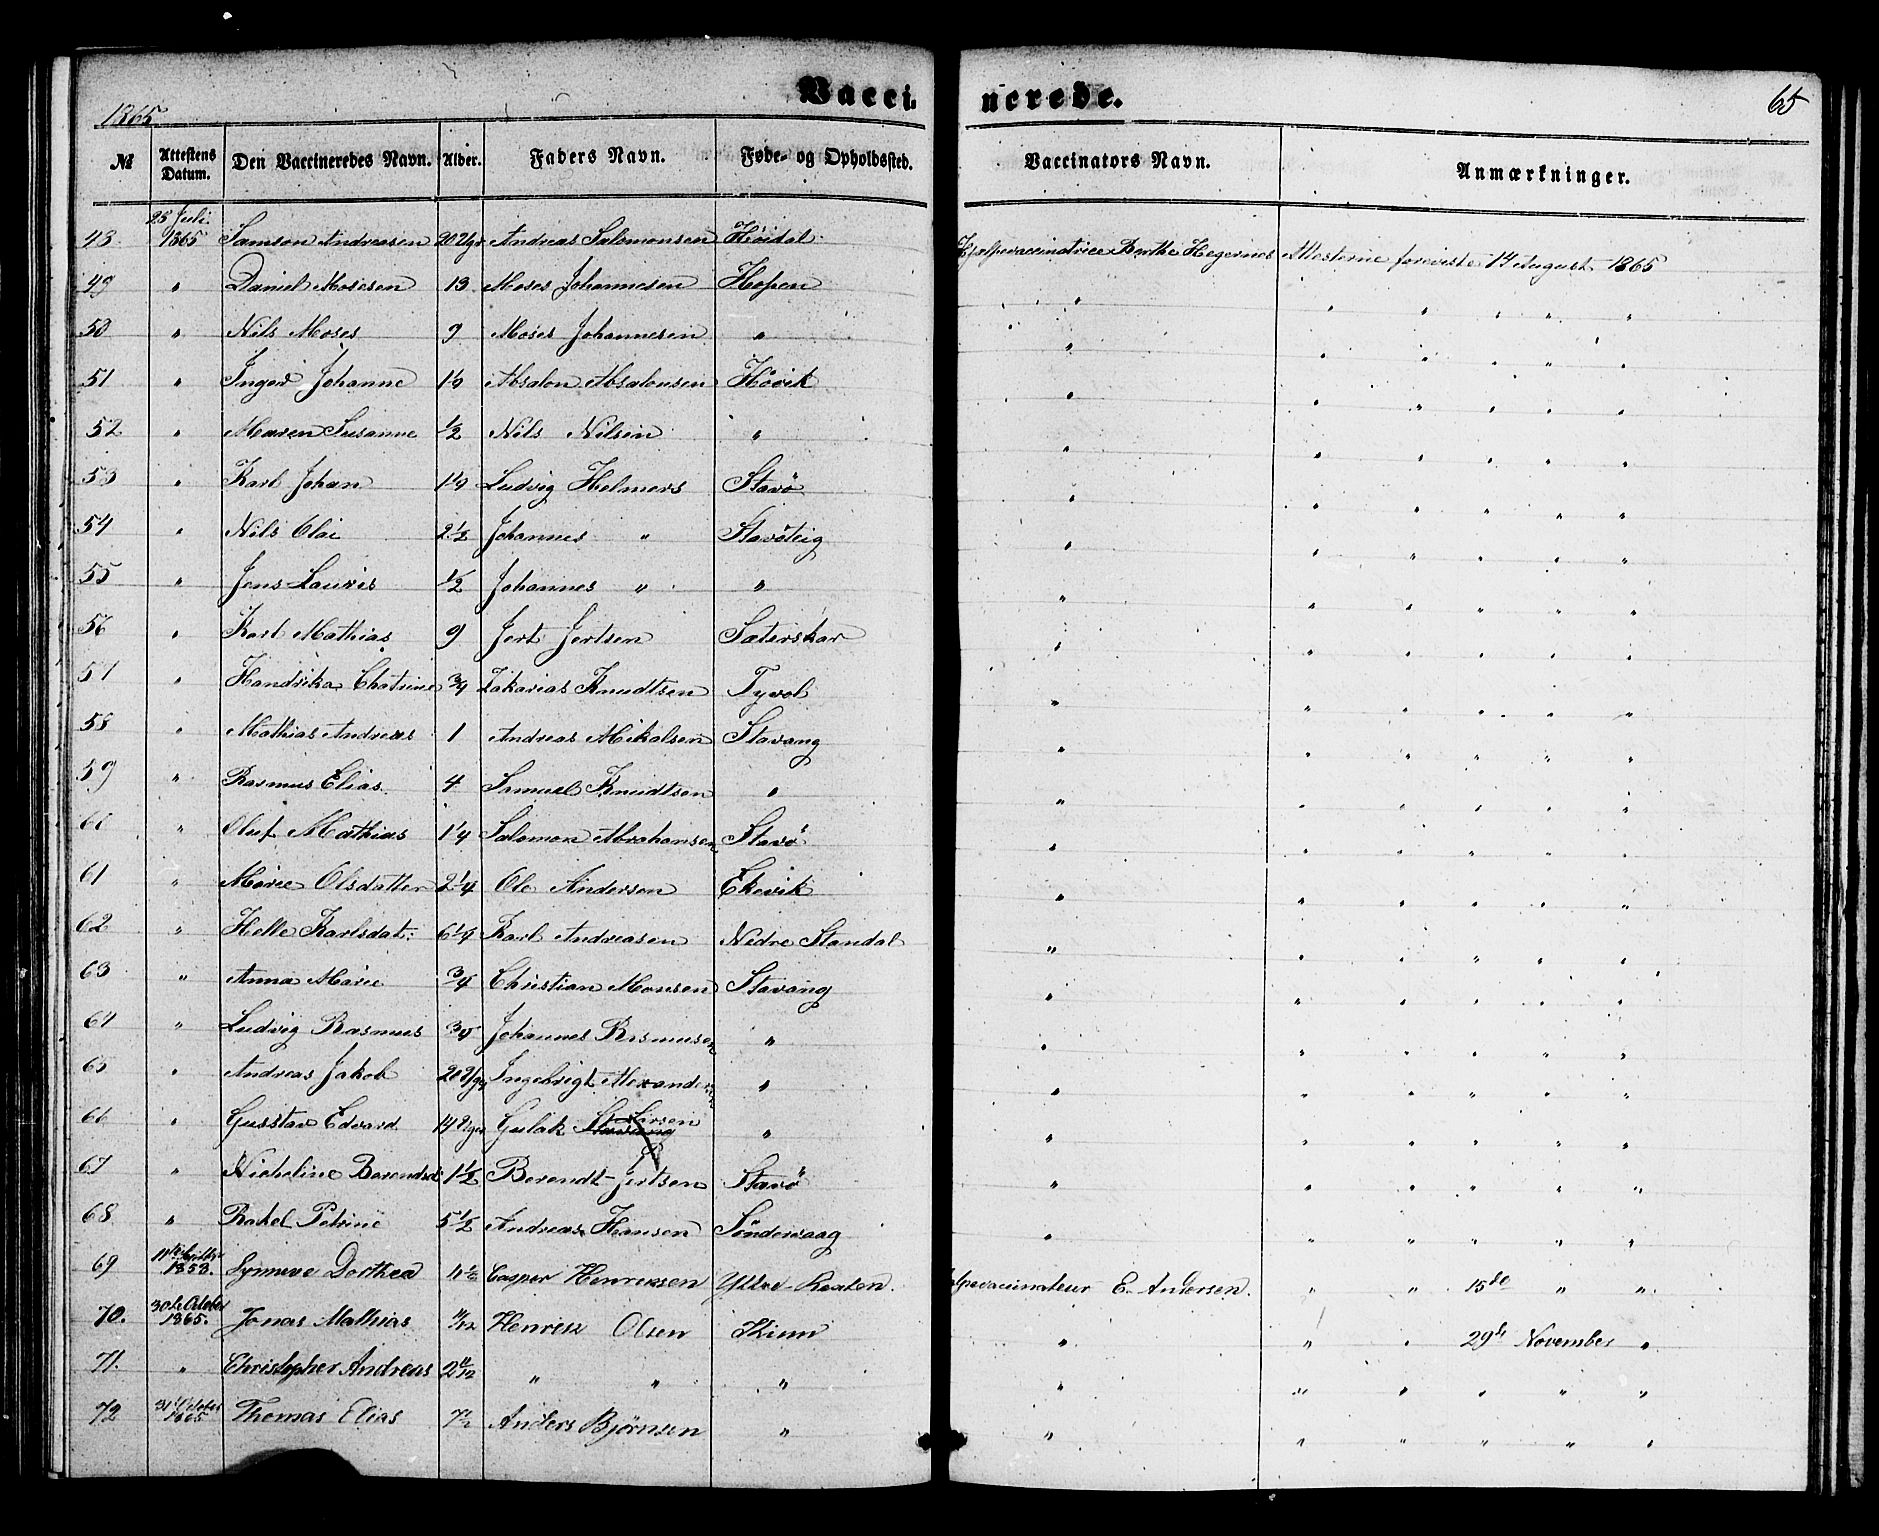 Vaccinerede.
1865
65
№ Attestens Datum. Den Vaccineredes Navn. Alder. Faders Navn. Føde- og Opholdssted. Vaccinators Navn. Anmærkninger.
48 25 Juli 1865 Samson Andreasen 20 Uger Andreas Salomonsen Høidal Hjælpevaccinatrice Berthe Hegernes Attesterne foreviste 14 August 1865
49 " Daniel Mosesen 13 Moses Johannesen Hopen " " " " " "
50 " Nils Moses 9 Moses Johannesen " " " " " " "
51 " Inger Johanne Absalon Absalonsen Høvik " " " " " "
52 " Maren Susanne ½ Nils Nilsen " " " " " " "
53 " Karl Johan Ludvig Helmers Stavø " " " " " "
54 " Nils Olai 2½ Johannes " Stavøteig " " " " " "
55 " Jens Lauris ½ Johannes " " " " " " " "
56 " Karl Mathias 9 Jert Jertsen Sæterskar " " " " " "
57 " Hendrika Chatrine ¾ Zakarias Knudtsen Tyvol " " " " " "
58 " Mathias Andreas 1 Andreas Mikalsen Stavang " " " " " "
59 " Rasmus Elias 4 Samuel Knudtsen " " " " " " "
60 " Oluf Mathias 1¼ Salomon Abrahamsen Stavø " " " " " "
61 " Marie Olsdatter 2¼ Ole Andersen Ekevik " " " " " "
62 " Helle Karlsdat: 6¼ Karl Andreasen Nedre Standal " " " " " "
63 " Anna Marie ¾ Christian Monsen Stavang " " " " " "
64 " Ludvig Rasmus Johannes Rasmusen " " " " " " "
65 " Andreas Jakob 20 Uger Ingebrigt " " " " " " "
66 " Gusstav Edvard 14 Uger Gulak Stavang Larsen " " " " " " "
67 " Nicheline Berendsd 1½ Berendt Jertsen Stavø " " " " " "
68 " Rakel Petrine 5½ Andreas Hansen Sønderaag " " " " " "
69 1858. Synneve Dorthea Casper Henriksen Yttre E. Andersen. " " 15de " "
70. 30te October 1865. Jonas Mathias 11/12 Henrik Olsen Kinn " " " 29de November "
71. " Christopher Andreas 2 11/12 " " " " " " " " "
72 31 October 1865 Thomas Elias 7½ Anders Bjørnsen " " " " " " "